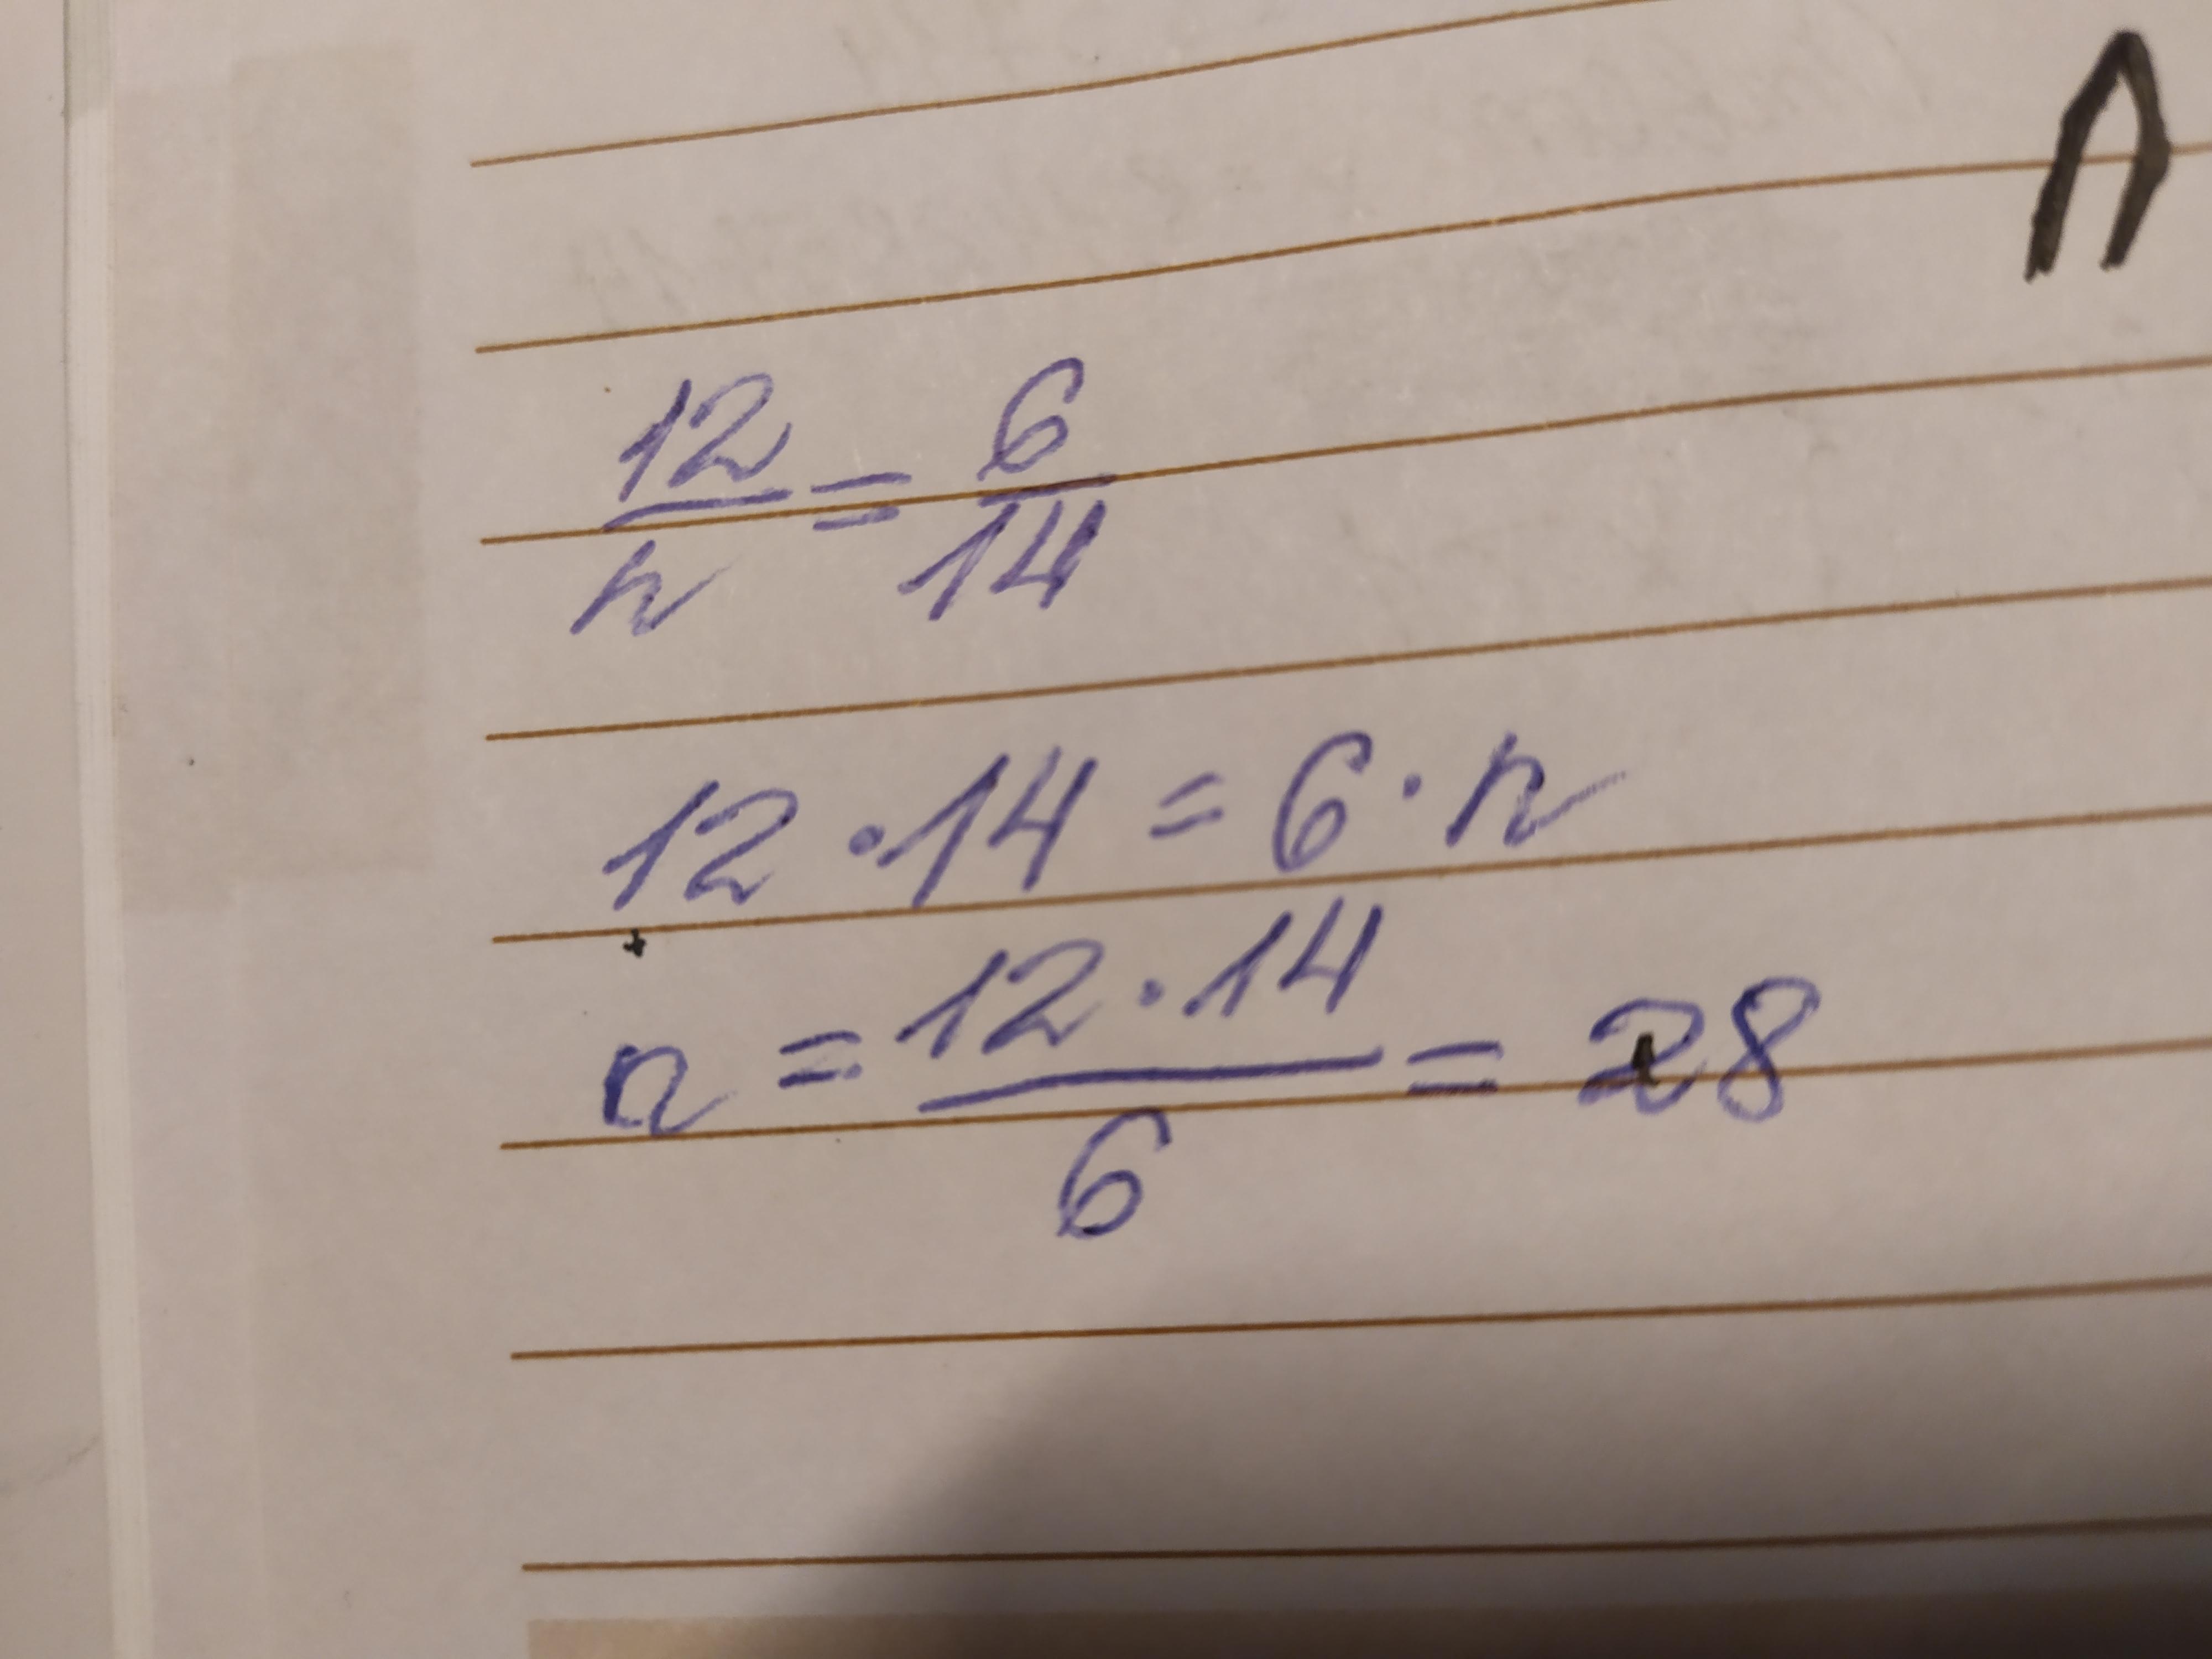 12/n = 6/14
12 · 14 = 6 · n
n = 12 · 14 / 6 = 28